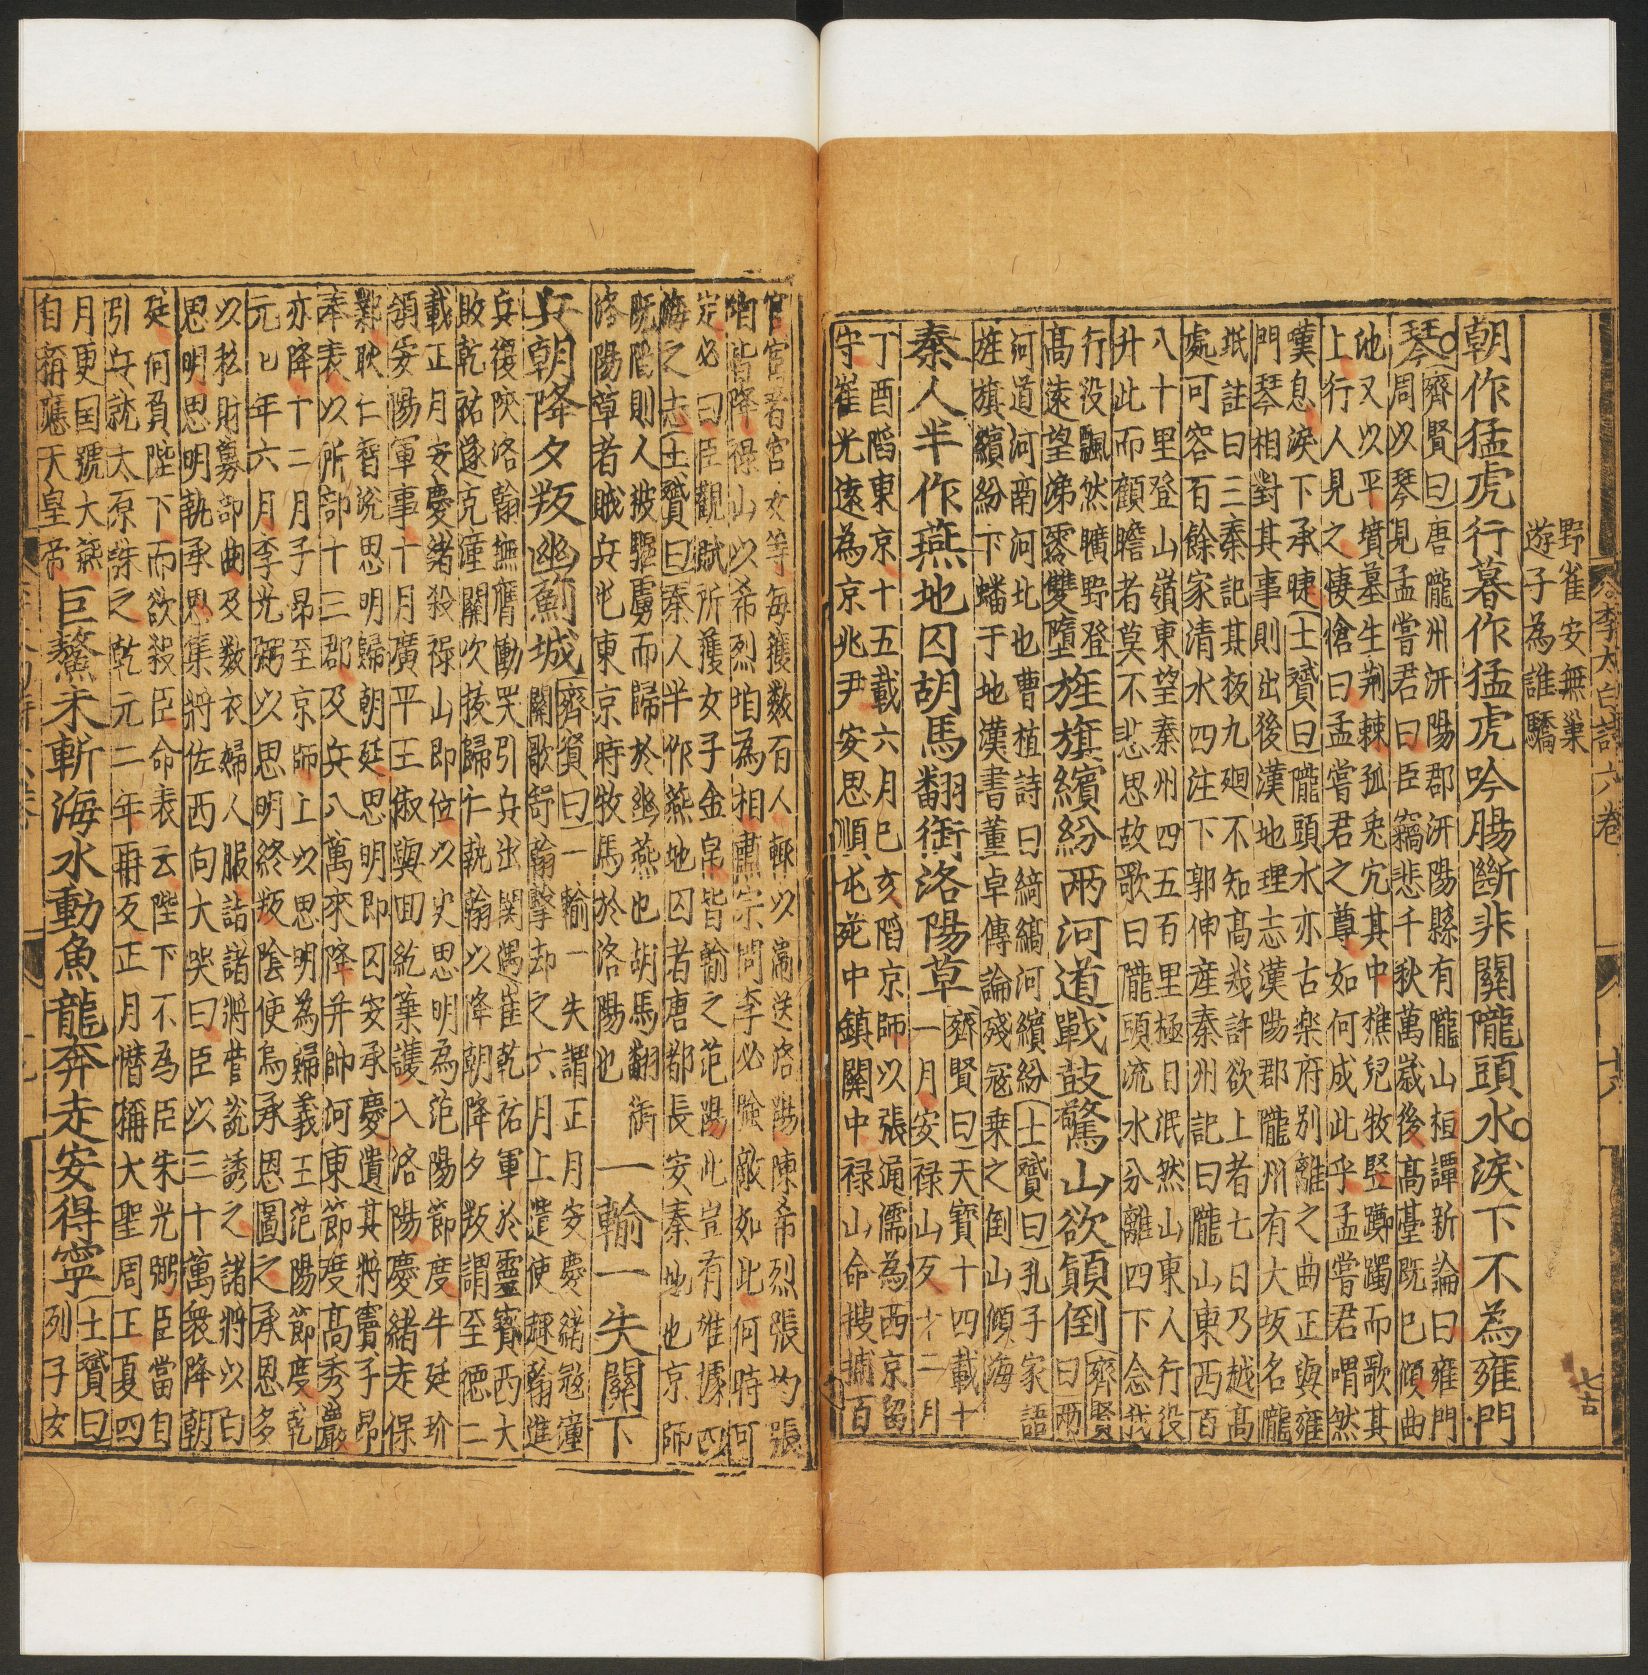 李太白詩六卷
七古
野雀安無巢
遊子為誰驕
朝作猛虎行暮作猛虎吟腸斷非關隴頭水淚下不為雍門
琴
齊賢曰唐隴州汧陽郡汧陽縣有隴山桓譚新論曰雍門
周以琴見孟嘗君曰臣竊悲千秋萬歲後高臺既已傾曲
池又以平墳墓生荊棘孤兔穴其中樵兒牧竪躑躅而歌其
上行人見之悽愴曰孟嘗君之尊如何成此乎孟嘗君喟然
嘆息淚下承睫士贇曰隴頭水亦古楽府別離之曲正與雍
門琴相對其事則出後漢地理志漢陽郡隴州有大坂名隴
坻註曰三秦記其坂九廻不知高㡬許欲上者七日乃越高
處可容百餘家清水四注下郭仲産秦州記曰隴山東西百
八十里登山嶺東望秦州四五百里極目泯然山東人行役
升此而顧瞻者莫不悲思故歌曰隴頭流水分離四下念我
行没飄然曠野登
高遠望涕零雙墮
旌旗繽紛兩河道戰鼓驚山欲顛倒
齊賢曰兩
河道河南河北也曹植詩曰綺縞河繽紛士贇曰孔子家語
旌旗纘紛下蟠于地漢書董卓傳論殘寇乗之倒山傾海
秦人半作燕地囚胡馬翻銜洛陽草
齊賢曰天寶十四載十
一月安禄山反十二月
丁酉陷東京十五載六月己亥陷京師以張通儒為西京留
守崔光遠為京兆尹安思順屯苑中鎮關中禄山命搜捕百
官宦者宫女等毎獲數百人輒以衛送洛陽陳希烈張均張
垍皆降禄山以希烈垍為相肅宗問李必險敵如此何時可
定必曰臣觀賊所獲女子金帛皆輸之范陽此豈有雄據四
海之志士贇曰秦人半作燕地囚者唐都長安秦地也京師
既陷則人被驅虜而歸於幽燕也胡馬翻銜
洛陽草者賊兵屯東京時牧馬於洛陽也
一輸一失關下
兵朝降夕叛幽薊城
齊賢曰一輸一失謂正月安慶緒冦潼
關歌舒翰撃却之六月上遣使趣翰進
兵復陜洛翰無膺慟哭引兵出関遇崔乾祐軍於靈寶西大
敗乾祐遂克潼關吹㧞歸仁執翰以降朝降夕叛謂至徳二
載正月安慶緒殺禄山即位以史思明為范陽節度牛廷玠
領安陽軍事十月廣平王俶與囬紇葉護入洛陽慶緒走保
鄴耿仁智説思明歸朝廷思明即囚安承慶遣其將竇子昂
奉表以所部十三郡及兵八萬來降并帥河東節度高秀巖
亦降十二月子昂至京師上以思明為歸義王范陽節度乾
元七年六月李光弼以思明終叛陰使烏承恩圖之承恩多
以私財募部曲及数衣婦人服詣諸將營説誘之諸將以白
思明思明執承恩集將佐西向大哭曰臣以三十萬衆降朝
廷何負陛下而欲殺臣命表云陛下不為臣朱光弼臣當自
引兵就太原誅之乾元二年再反正月僣稱大聖周正夏四
月更囯號大燕
自稱應天皇帝
巨鰲未斬海水動魚龍奔走安得寧
士贇曰
列子女